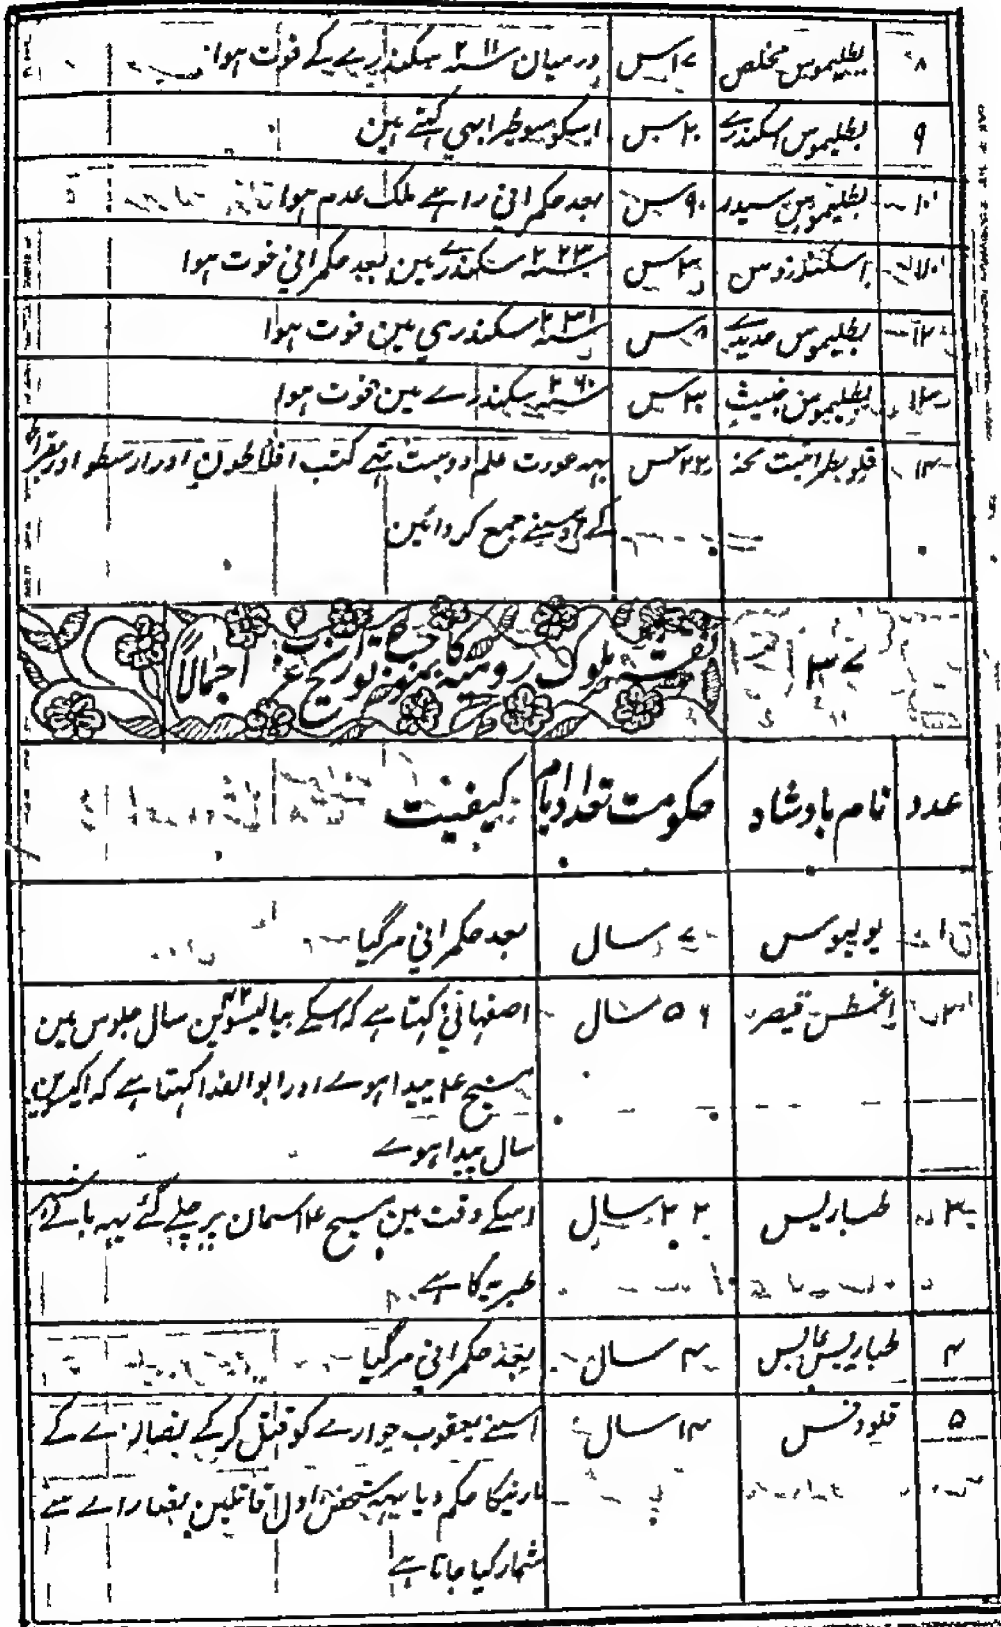 ۸ بطلیموس مخلص ۱۷س درمیان سنہ ۲۱۱ سکندریے کے فوت ہوا
۹ بطلیموس اسکندرے ۲۰س اسکو سوطرابہی کہتے ہین
۱۰ بطلیموس سیدر ۹۰س بعد حکمرانی راہے ملک عدم ہوا
۱۱ اسکندروس ۳س سنہ ۲۲۳ سکندرے مین بعد حکمرانی فوت ہوا
۱۲ بطلیموس حدیدے ۸س سنہ ۲۳۱ سکندری مین فوت ہوا
۱۳ بطلیموس خبیث ۳۰س سنہ ۲۶۰ سکندرے مین فوت ہوا
۱۴ قلوبطرا بنت ۲۲س یہہ عورت علم دوست تہے کتب افلاطون اور ارسطو اور بقراط
کے اوسنے جمع کروائین
نقشہ ملوک رومیہ کا بموجب تواریخ اجمالاً
عدد نام بادشاہ حکومت تعداد ایام کیفیت
۱ یولیوس ۷ سال بعد حکمرانی مرگیا
۲ اغسطس قیصر ۵۶ سال اصفہانی کہتا ہے کہ اسکے بیالیسوین ۴۲ سال جلوس مین
مسیح ع پیدا ہوے اور ابو الفدا کہتا ہے کہ اکیسوین
سال پیدا ہوے
۳ طباریس ۲۲ سال اسکے وقت مین مسیح ع اسمان پر چلے گئے یہہ بانے شہر
طبریہ کا ہے
۴ طباریس غالیس ۴ سال بعد حکمرانی مرگیا
۵ قلودنس ۱۴ سال اسنے یعقوب حوارے کو قتل کرکے نصارے کے
مارنیکا حکم دیا یہہ شخص اول قاتلین نصارا سے
شمار کیا جاتا ہے